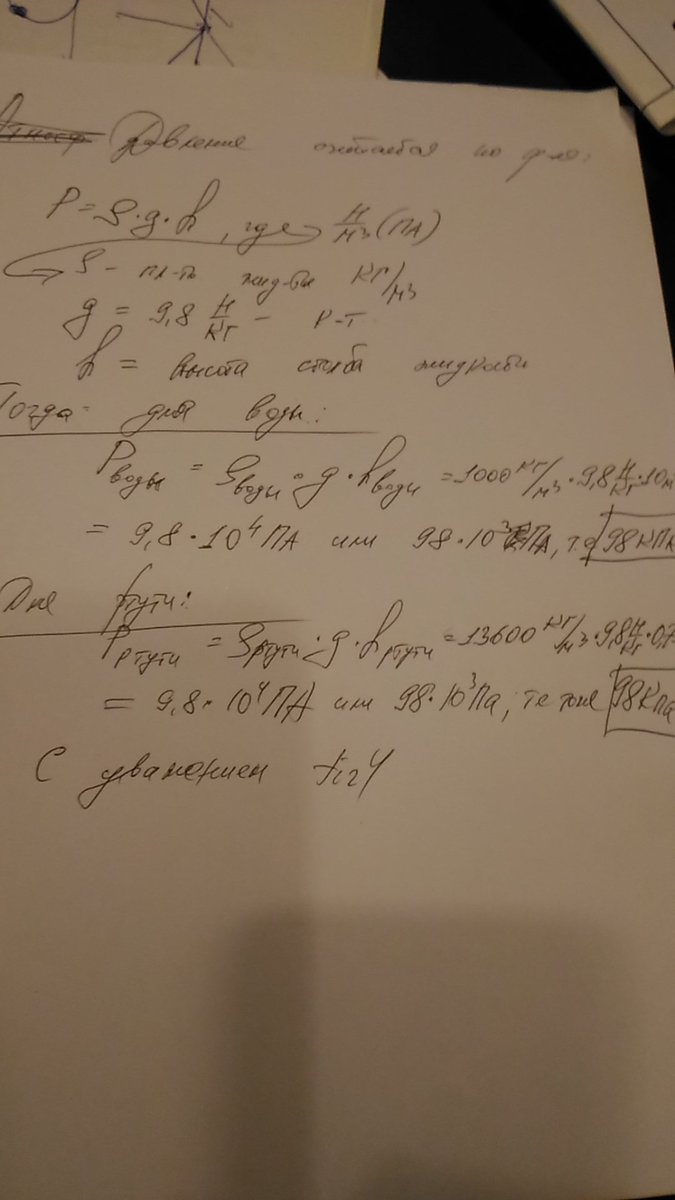 Давление считается по ф-ле:
P = ρ · g · h, где Н/м3 (ПА)
ρ - пл-ть жид-ти КГ/м3
g = 9,8 Н/КГ -
h = высота столба жидкости
Тогда для воды:
Pводы = ρводы · g · hводы = 1000 КГ/м3 · 9,8 Н/КГ · 10м
= 9,8 · 10⁴ ПА или 98 · 10³ ПА, т.е 98 КПА
Для ртути:
Pртути = ρртути · g · hртути = 13600 КГ/м3 · 9,8 Н/КГ · 0,7
= 9,8 · 10⁴ ПА или 98 · 10³ Па, те тоже 98 КПа
С уважением